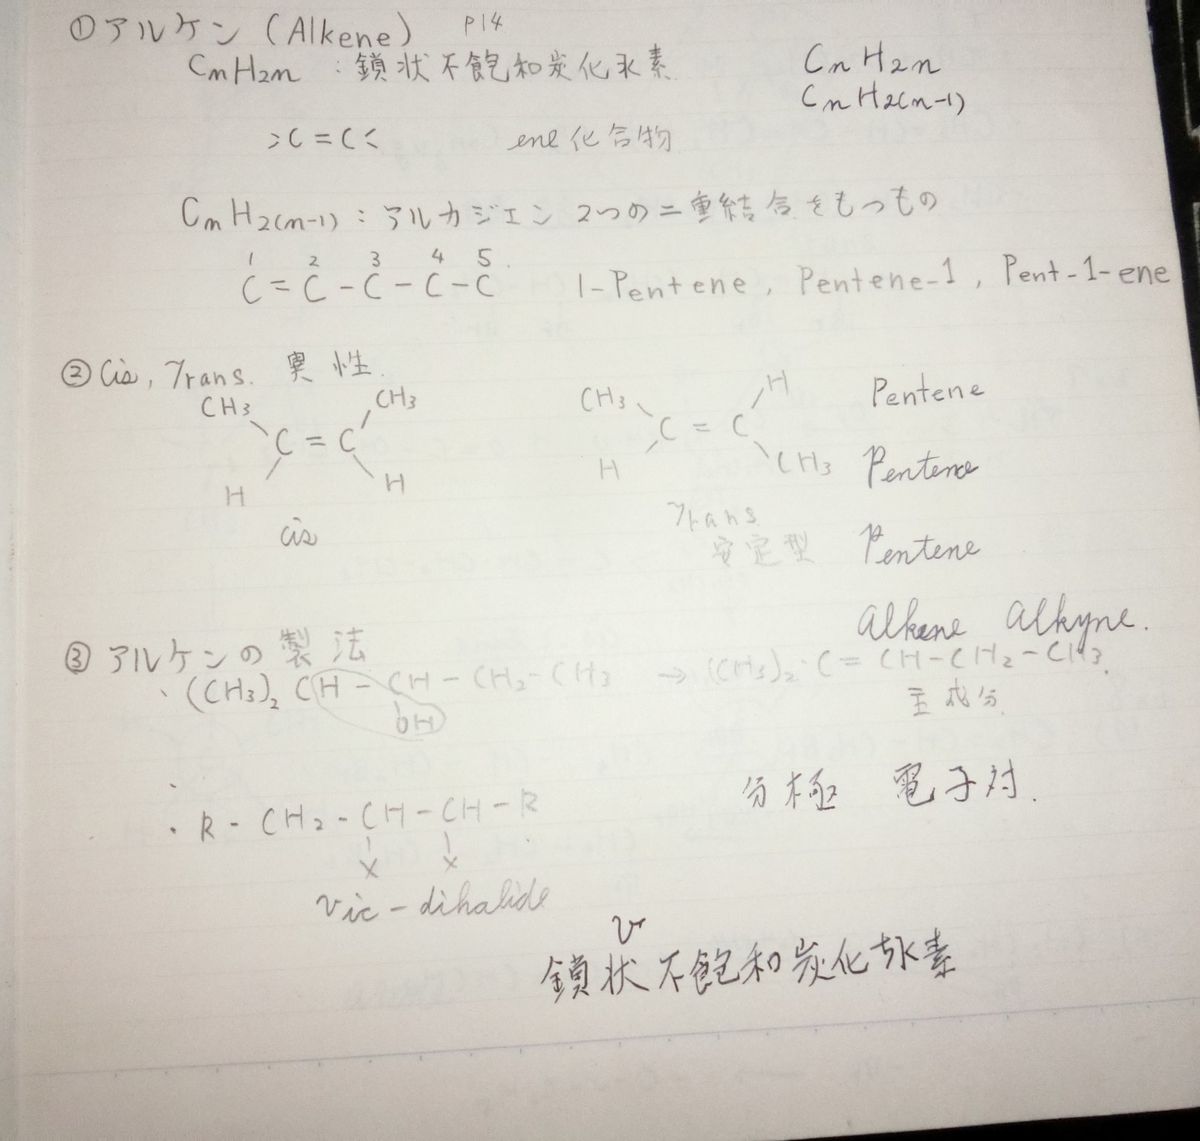 ①アルケン (Alkene) P14
CnH2n : 鎖状不飽和炭化水素
CnH2n
CnH2(n-1)
>C=C< ene化合物
CnH2(n-1) : アルカジエン 2つの二重結合をもつもの
1 2 3 4 5
C=C-C-C-C 1-Pentene, Pentene-1, Pent-1-ene
②Cis, Trans. 異性
CH3 CH3
C=C
H H
cis
CH3 H
C=C
H CH3
Trans
安定型
Pentene
Pentene
Pentene
Alkene Alkyne.
③アルケンの製法
・(CH3)2CH-CH-CH2-CH3 → (CH3)2・C=CH-CH2-CH3
OH
主成分
・R-CH2-CH-CH-R
X X
vic-dihalide
分極 電子対.
鎖状不飽和炭化水素